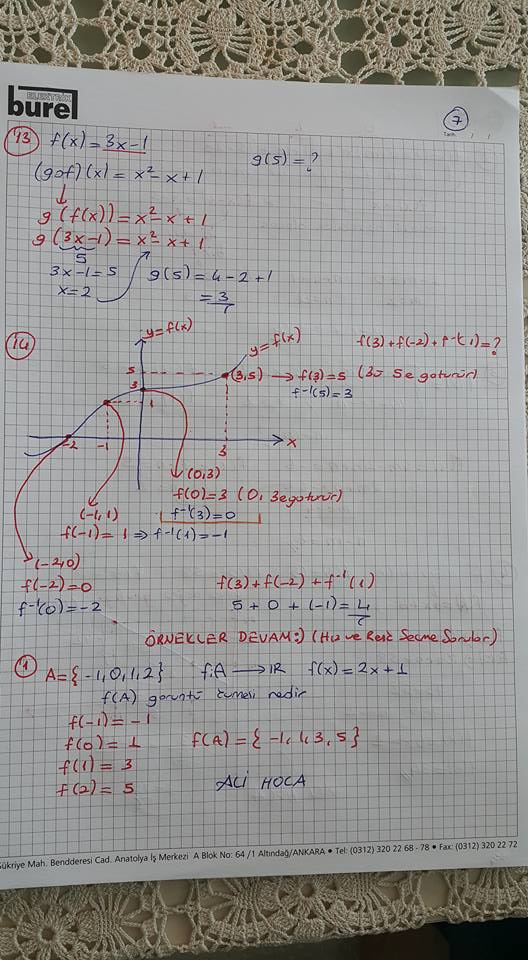 ELEKTRİK
burel
7
Tarih / /
13 f(x) = 3x-1 g(5) = ?
(gof)(x) = x²-x+1
g(f(x)) = x²-x+1
g(3x-1) = x²-x+1
5
3x-1=5 g(5) = 4-2+1
x=2 = 3
14 y=f(x) y=f(x) f(3)+f(-2)+f⁻¹(1)=?
5 (3,5) → f(3)=5 (3ü 5e götürür)
3 f⁻¹(5)=3
1
-2 -1 3 x
(0,3)
f(0)=3 (0, 3e götürür)
(-1,1) f⁻¹(3)=0
f(-1)=1 ⇒ f⁻¹(1)=-1
(-2,0)
f(-2)=0 f(3)+f(-2)+f⁻¹(1)
f⁻¹(0)=-2 5+0+(-1)=4
ÖRNEKLER DEVAM:) (Hız ve Seçme Sorular)
1 A={-1,0,1,2} f:A → IR f(x)=2x+1
f(A) görüntü kümesi nedir
f(-1) = -1
f(0) = 1 f(A) = {-1,1,3,5}
f(1) = 3
f(2) = 5 ALİ HOCA
Şükriye Mah. Bendderesi Cad. Anatolya İş Merkezi A Blok No: 64 /1 Altındağ/ANKARA • Tel: (0312) 320 22 68 - 78 • Fax: (0312) 320 22 72